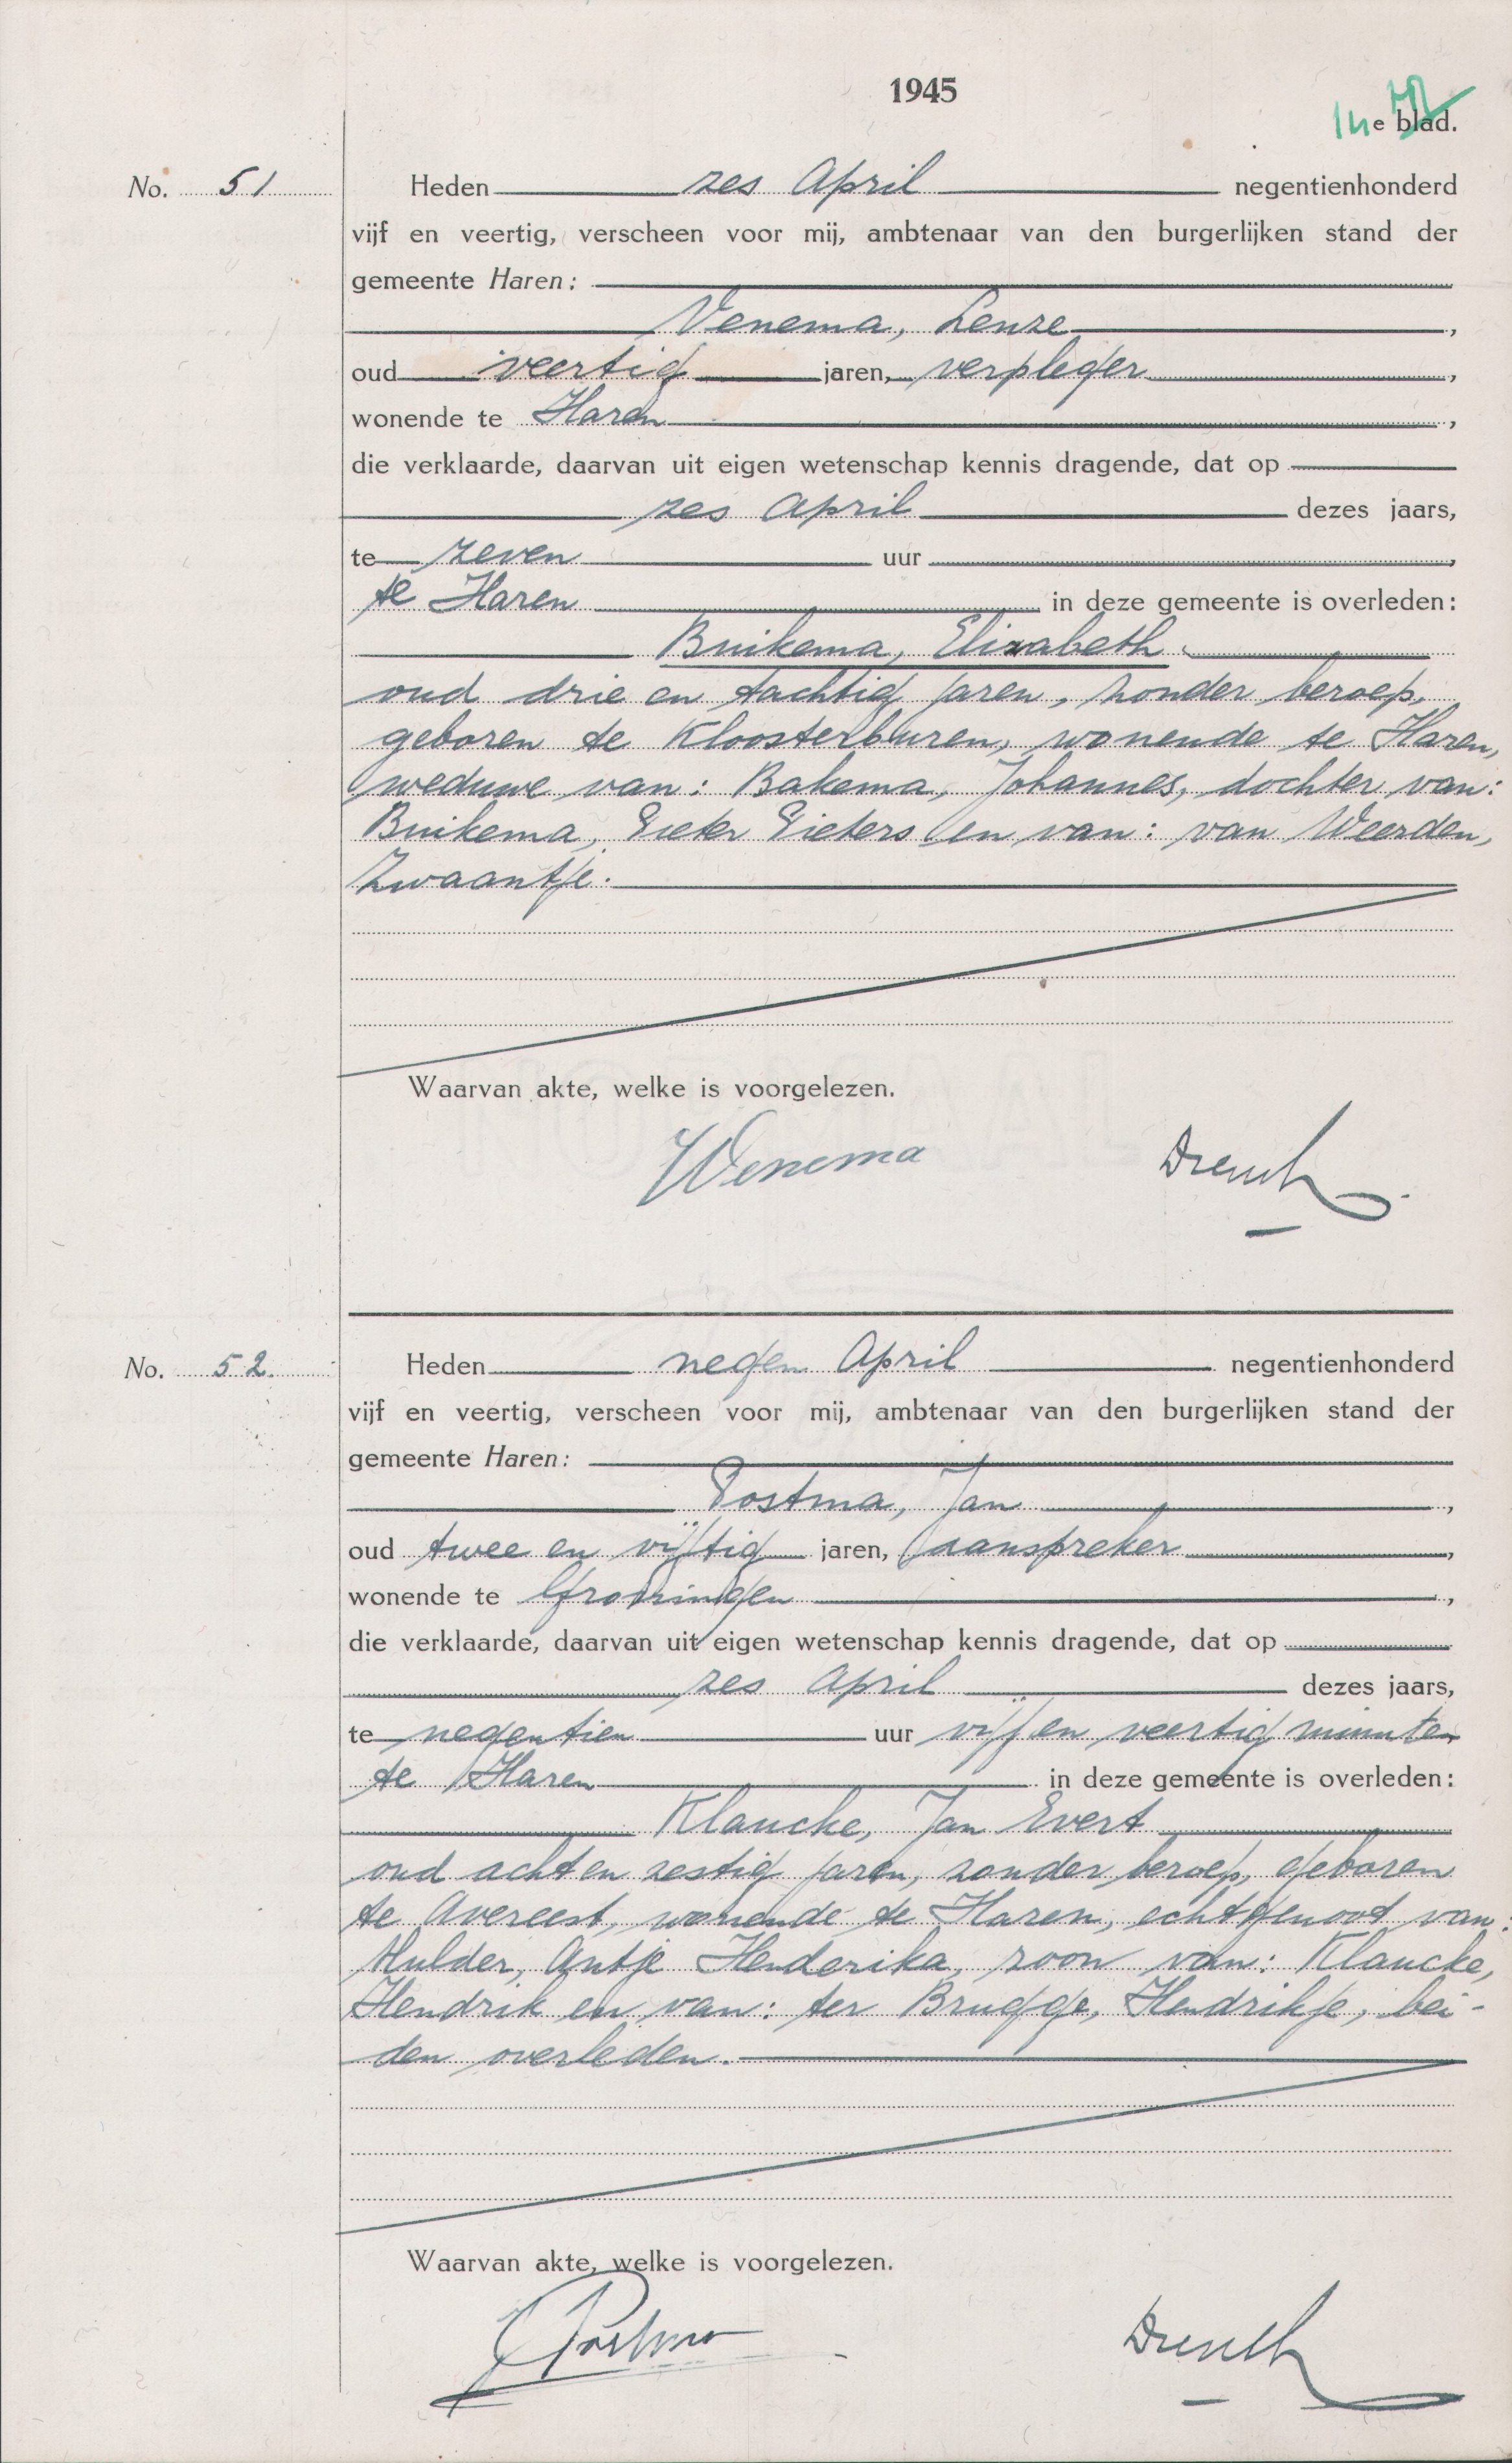 1945
14e blad.
No. 51 Heden zes April negentienhonderd
vijf en veertig, verscheen voor mij, ambtenaar van den burgerlijken stand der
gemeente Haren:
Venema, Lenze,
oud veertig jaren, verpleger,
wonende te Haren,
die verklaarde, daarvan uit eigen wetenschap kennis dragende, dat op
zes April dezes jaars,
te zeven uur,
te Haren in deze gemeente is overleden:
Buikema, Elizabeth,
oud drie en tachtig jaren, zonder beroep,
geboren te Kloosterburen, wonende te Haren,
weduwe van: Bakema, Johannes, dochter van:
Buikema, Pieter Pieters en van: van Weerden,
Zwaantje.
Waarvan akte, welke is voorgelezen.
Wenema Drenth
No. 52. Heden negen April negentienhonderd
vijf en veertig, verscheen voor mij, ambtenaar van den burgerlijken stand der
gemeente Haren:
Postma, Jan,
oud twee en vijftig jaren, aanspreker,
wonende te Groningen,
die verklaarde, daarvan uit eigen wetenschap kennis dragende, dat op
zes April dezes jaars,
te negentien uur vijf en veertig minuten
te Haren in deze gemeente is overleden:
Klaucke, Jan Evert
oud acht en zestig jaren, zonder beroep, geboren
te Avereest, wonende te Haren, echtgenoot van:
Mulder, Antje Henderika, zoon van: Klaucke,
Hendrik en van: ter Brugge, Hendrikje, bei-
den overleden.
Waarvan akte, welke is voorgelezen.
J Postma Drenth